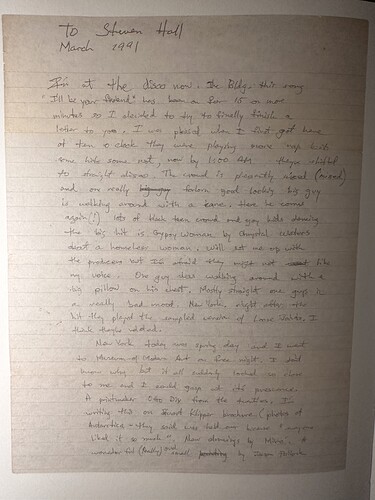 To Steven Hall
March 1991
I'm at the disco now. The Bldg. this song
"I'll be your friend" has been on for 15 or more
minutes so I decided to try to finally finish a
letter to you. I was pleased when I first got here
at ten o clock they were playing more rap
some, some not, now by 1:00 AM. they shifted
to straight disco. The crowd is pleasantly mixed
and one really forlorn good looking big guy
is walking around with a . Here he comes
again(!) lots of black teen crowd and gay kids dancing
the big hit is Gypsy Woman by Crystal Waters
about a homeless woman. Will set me up with
the producers but I'm afraid they might not like
my voice. One guy was walking around with a
big pillow on his shirt. Mostly straight one guy's in
a really bad mood. New York, night after
but they played the version of Loose I
think they're
New York today was spring day and I went
to Museum of Modern Art on free night. I don't
know why but it all suddenly looked so close
to me and I could at its presence.
A printmaker Otto Dix from the . I'm
writing this on Fixed Flipper brochure (photos of
Antarctica – they said was held over because "everyone
liked it so much". New drawings by Miro. A
wonderful (really) and small by Jason Pollock